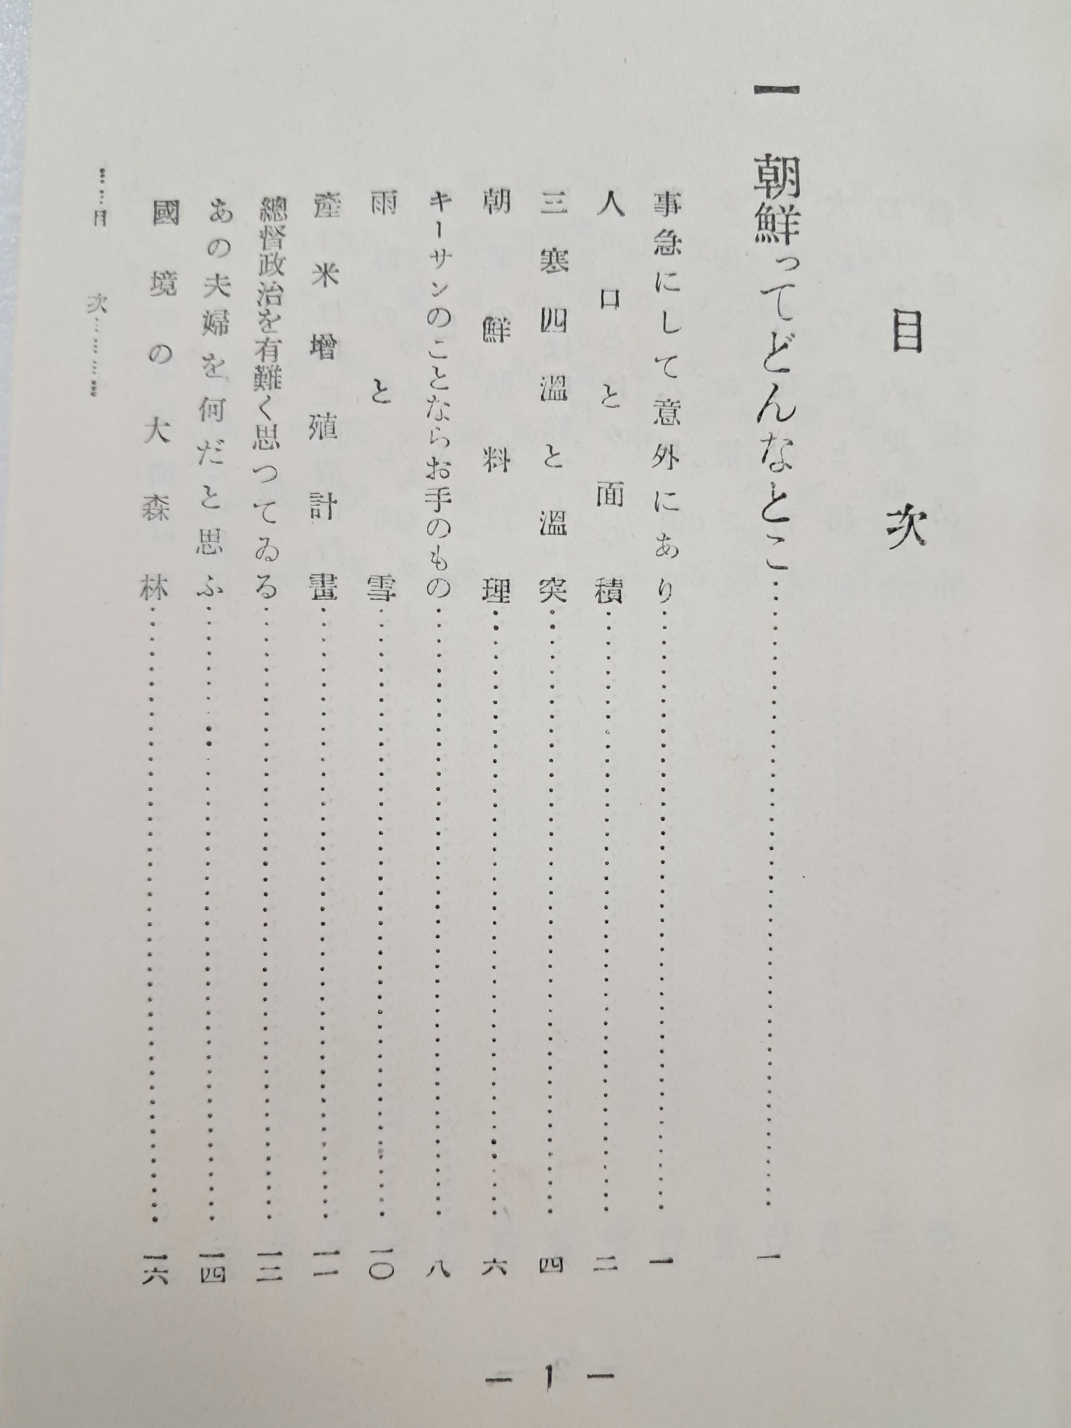 目次
一 朝鮮ってどんなとこ……………………一
事急にして意外にあり……………………一
人口と面積……………………二
三寒四溫と溫突……………………四
朝鮮料理……………………六
キーサンのことならお手のもの……………………八
雨と雪……………………一〇
產米增殖計畫……………………一一
總督政治を有難く思つてゐる……………………一二
あの夫婦を何だと思ふ……………………一四
國境の大森林……………………一六
……目次…………
— 1 —